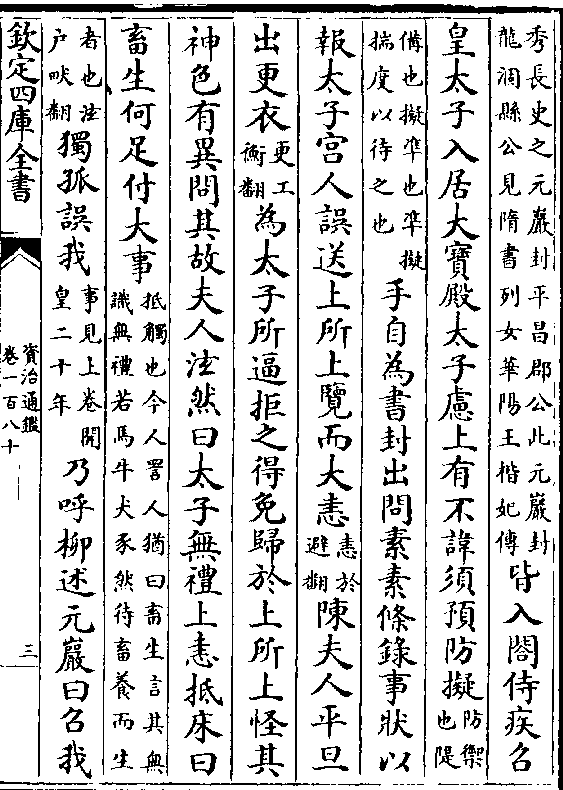 秀長史之元巖封平昌郡公此元巖封
龍涸縣公見隋書列女華陽王楷妃傳
皆入閤侍疾召
皇太子入居大寶殿太子慮上有不諱須預防擬
防禦
也隄
備也擬準也準擬
揣度以待之也
手自為書封出問素素條錄事狀以
報太子宫人誤送上所上覽而大恚
恚於
避翻
陳夫人平旦
出更衣
更工
衡翻
為太子所逼拒之得免歸於上所上怪其
神色有異問其故夫人泫然曰太子無禮上恚抵床曰
畜生何足付大事
抵觸也今人詈人猶曰畜生言其無
識無禮若馬牛犬豕然待畜養而生
者也泫
户畎翻
獨孤誤我
事見上卷開
皇二十年
乃呼柳述元巖曰召我
欽定四庫全書
資治通鑑
卷一百八十
三